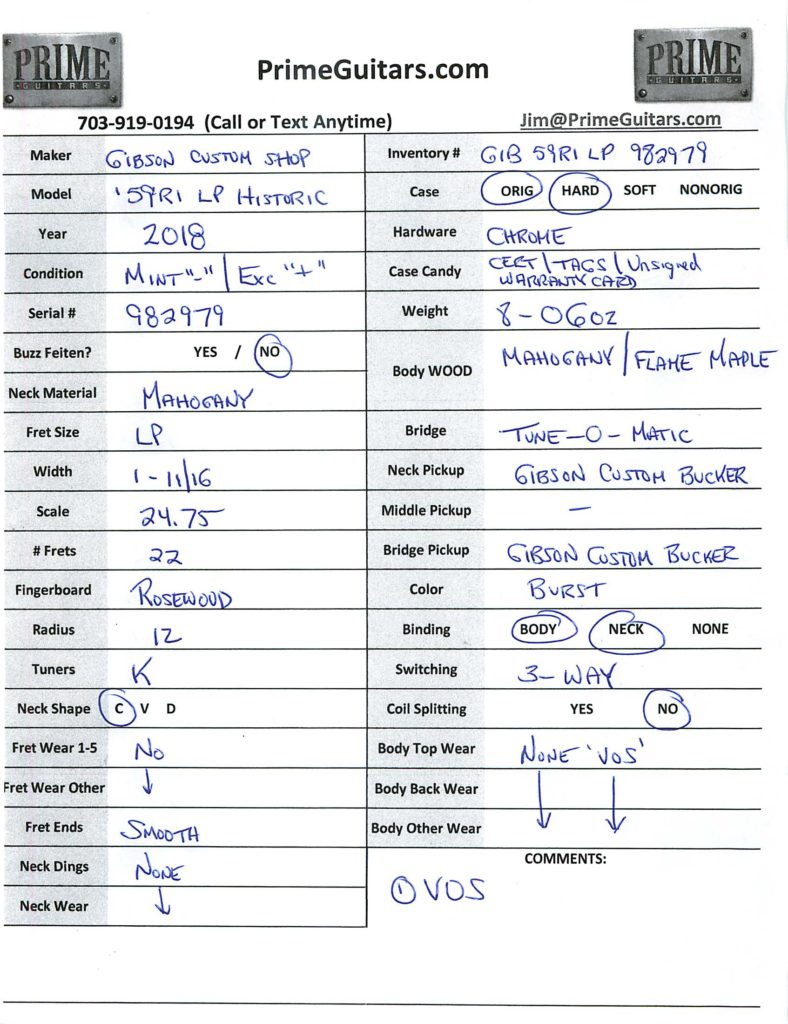 PRIME
GUITARS
PrimeGuitars.com
PRIME
GUITARS
703-919-0194 (Call or Text Anytime)
Jim@PrimeGuitars.com
Maker GIBSON CUSTOM SHOP
Model '59RI LP HISTORIC
Year 2018
Condition MINT"-"/EXC "+"
Serial # 982979
Buzz Feiten? YES / NO
Neck Material MAHOGANY
Fret Size LP
Width 1-11/16
Scale 24.75
# Frets 22
Fingerboard ROSEWOOD
Radius 12
Tuners K
Neck Shape C V D
Fret Wear 1-5 NO
Fret Wear Other ↓
Fret Ends SMOOTH
Neck Dings NONE
Neck Wear ↓
Inventory # GIB 59RI LP 982979
Case ORIG HARD SOFT NONORIG
Hardware CHROME
Case Candy CERT/TAGS/Unsigned
WARRANTY CARD
Weight 8-06oz
Body WOOD MAHOGANY/FLAME MAPLE
Bridge TUNE-O-MATIC
Neck Pickup GIBSON CUSTOM BUCKER
Middle Pickup —
Bridge Pickup GIBSON CUSTOM BUCKER
Color BURST
Binding BODY NECK NONE
Switching 3-WAY
Coil Splitting YES NO
Body Top Wear NONE 'VOS'
Body Back Wear ↓ ↓
Body Other Wear
COMMENTS:
① VOS